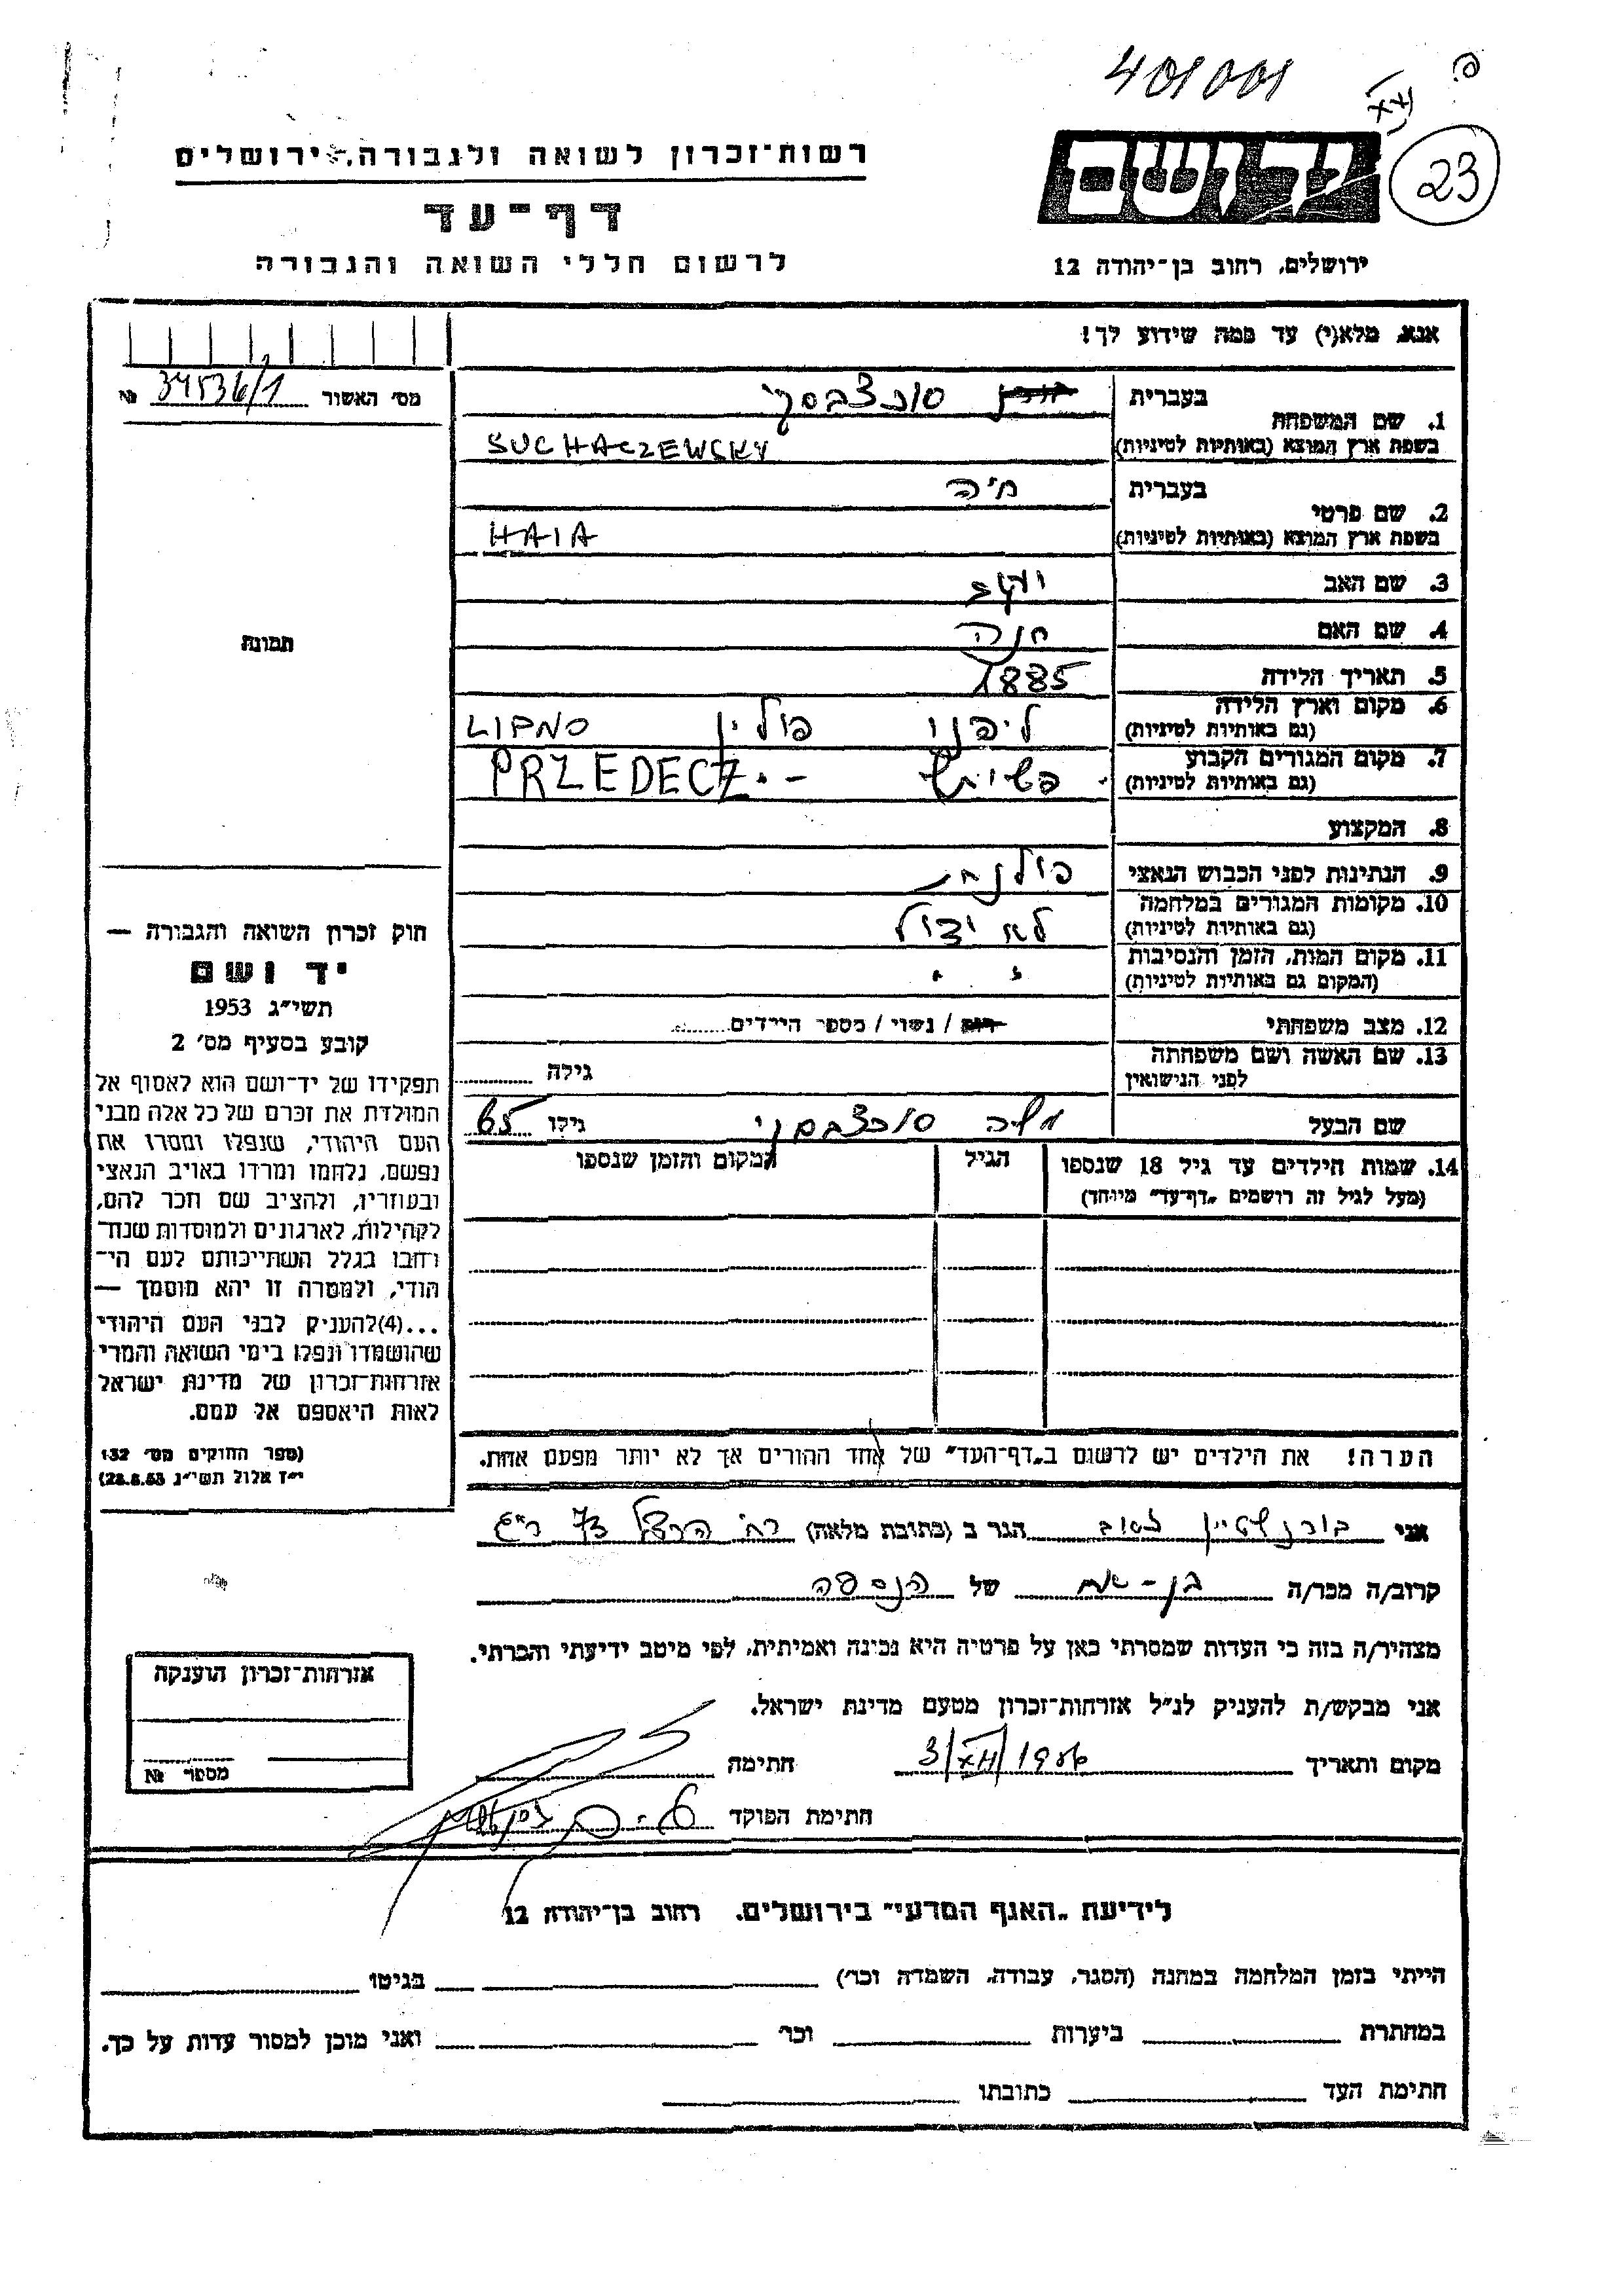 401001
XXI
23
רשות־זכרון לשואה ולגבורה, ירושלים
ידושם
דף־עד
לרשום חללי השואה והגבורה
ירושלים, רחוב בן־יהודה 12
אנא, מלא(י) עד כמה שידוע לך!
מס׳ האשור 34536/1 №
1. שם המשפחה בעברית סוכצבסקי
בשפת ארץ המוצא (באותיות לטיניות) SUCHACZEWSKY
2. שם פרטי בעברית חיה
בשפת ארץ המוצא (באותיות לטיניות) HAIA
3. שם האב יעקב
4. שם האם חנה
5. תאריך הלידה 1885
6. מקום וארץ הלידה (גם באותיות לטיניות) ליפנו פולין LIPNO
7. מקום המגורים הקבוע (גם באותיות לטיניות) PRZEDECZ
8. המקצוע
9. הנתינות לפני הכבוש הנאצי פולנית
10. מקומות המגורים במלחמה (גם באותיות לטיניות) לא ידוע
11. מקום המות, הזמן והנסיבות (המקום גם באותיות לטיניות) " "
12. מצב משפחתי רווק / נשוי / מספר הילדים
13. שם האשה ושם משפחתה לפני הנישואין גילה
שם הבעל משה סוכצבסקי גילו 65
14. שמות הילדים עד גיל 18 שנספו (מעל לגיל זה רושמים „דף־עד” מיוחד) הגיל המקום והזמן שנספו
הערה! את הילדים יש לרשום ב„דף־העד” של אחד ההורים אך לא יותר מפעם אחת.
תמונה
חוק זכרון השואה והגבורה —
יד ושם
תשי״ג 1953
קובע בסעיף מס׳ 2
תפקידו של יד־ושם הוא לאסוף אל
המולדת את זכרם של כל אלה מבני
העם היהודי, שנפלו ומסרו את
נפשם, נלחמו ומרדו באויב הנאצי
ובעוזריו, ולהציב שם וזכר להם,
לקהילות, לארגונים ולמוסדות שנח־
רבו בגלל השתייכותם לעם הי־
הודי, ולמטרה זו יהא מוסמך —
...(4)להעניק לבני העם היהודי
שהושמדו ונפלו בימי השואה והמרי
אזרחות־זכרון של מדינת ישראל
לאות היאספם אל עמם.
(ספר החוקים מס׳ 132
י״ז אלול תשי״ג 28.8.53)
אני בורנשטיין הגר ב (כתובת מלאה) רח׳ הרצל 73 ר״ג
קרוב/ה מכר/ה בן - של הנספה
מצהיר/ה בזה כי העדות שמסרתי כאן על פרטיה היא נכונה ואמיתית, לפי מיטב ידיעתי והכרתי.
אני מבקש/ת להעניק לנ״ל אזרחות־זכרון מטעם מדינת ישראל.
מקום ותאריך 3/XII/1956 חתימה
חתימת הפוקד
אזרחות־זכרון הוענקה
מספר №
לידיעת „האגף המדעי” בירושלים, רחוב בן־יהודה 12
הייתי בזמן המלחמה במחנה (הסגר, עבודה, השמדה וכר׳) בגיטו
במחתרת ביערות וכר׳ ואני מוכן למסור עדות על כך.
חתימת העד כתובתו